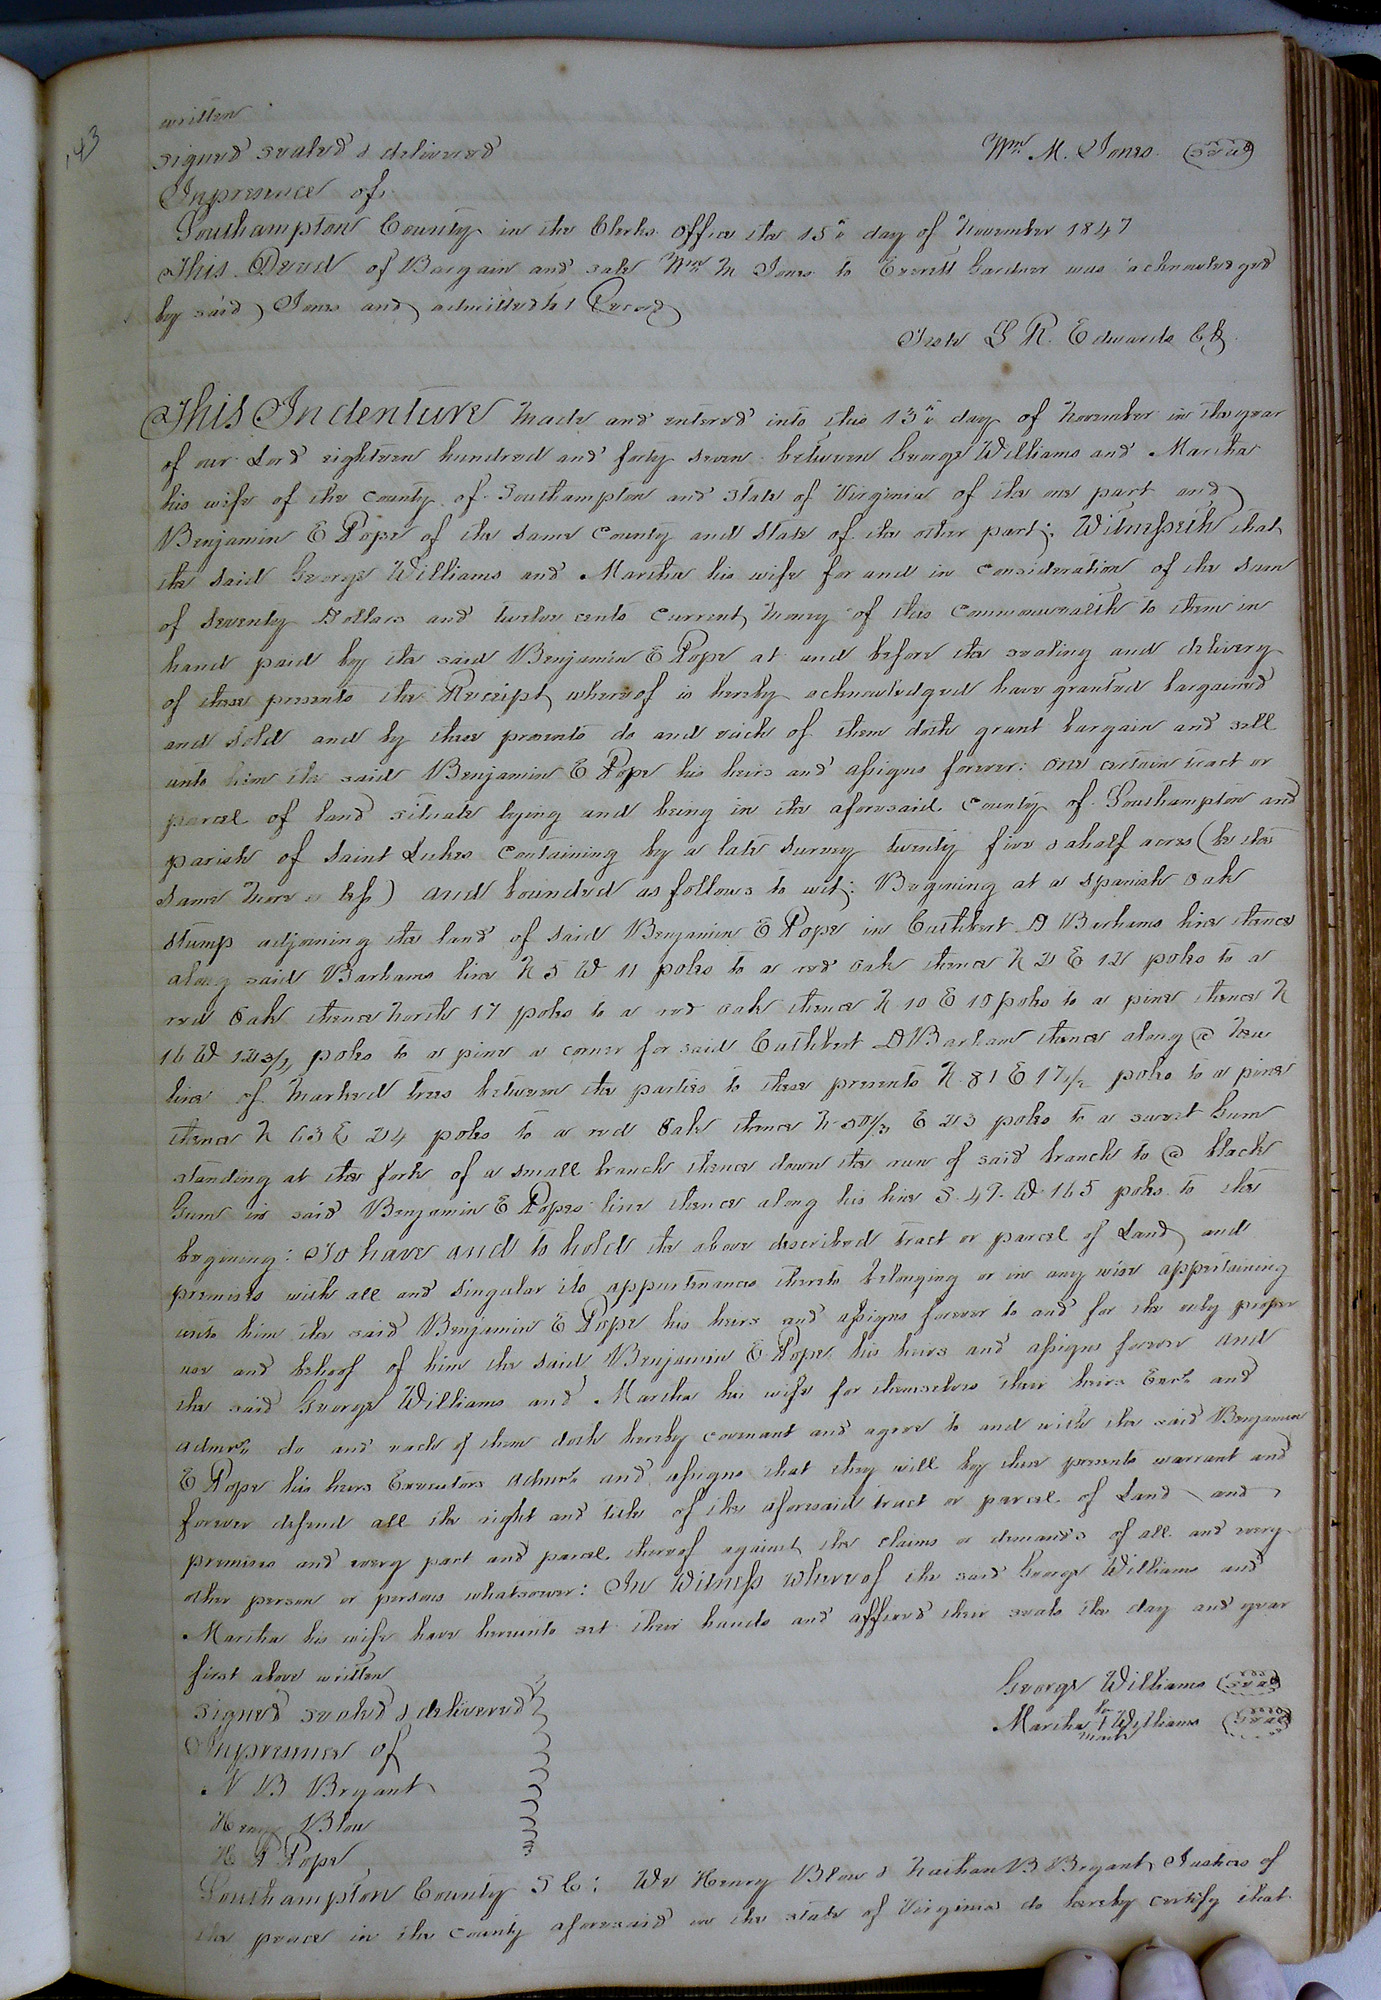 143
written
signed sealed & delivered Wm M. Jones (seal)
In presence of
Southampton County in the Clerks office the 15th day of November 1847
This Deed of Bargain and sale Wm M Jones to Everett Gardner was acknowledged
by said Jones and admitted to Record
Teste L R. Edwards Clk
This Indenture made and entered into this 13th day of November in the year
of our Lord eighteen hundred and forty seven between George Williams and Martha
his wife of the county of Southampton and State of Virginia of the one part and
Benjamin E Pope of the same County and State of the other part; Witnesseth that
the said George Williams and Martha his wife for and in Consideration of the sum
of seventy Dollars and twelve cents current money of this commonwealth to them in
hand paid by the said Benjamin E Pope at and before the sealing and delivery
of these presents the Receipt whereof is hereby acknowledged have granted bargained
and sold and by these presents do and each of them doth grant bargain and sell
unto him the said Benjamin E Pope his heirs and assigns forever: one certain tract or
parcel of land situate lying and being in the aforesaid County of Southampton and
parish of Saint Lukes Containing by a late survey twenty five & a half acres (be the
same more or less) and bounded as follows to wit; Begining at a spanish oak
stump adjoining the land of said Benjamin E Pope in Cuthbert D Barhams line thence
along said Barhams line N 5 W 11 poles to a red oak thence N 2 E 12 poles to a
red oak thence North 17 poles to a red oak thence N 10 E 10 poles to a pine thence N
16 W poles to a pine a corner for said Cuthbert D Barham thence along a new
line of marked trees between the parties to these presents N 81 E 17 1/2 poles to a pine
thence N 63 E 24 poles to a red Oak thence N 50 1/2 E 23 poles to a sweet Gum
standing at the fork of a small branch thence down the run of said branch to a black
Gum in said Benjamin E Popes line thence along his line S. 49. W. 165 poles to the
begining: To have and to hold the above described tract or parcel of Land and
premises with all and singular its appurtenances thereto belonging or in any wise appertaining
unto him the said Benjamin E Pope his heirs and assigns forever to and for the only proper
use and behoof of him the said Benjamin E Pope his heirs and assigns forever and
the said George Williams and Martha his wife for themselves their heirs Exrs and
admrs do and each of them doth hereby covenant and agree to and with the said Benjamin
E Pope his heirs Executors admrs and assigns that they will by these presents warrant and
forever defend all the right and title of the aforesaid tract or parcel of Land and
premises and every part and parcel thereof against the claims or demands of all and every
other person or persons whatsoever: In Witness whereof the said George Williams and
Martha his wife have hereunto set their hands and affixed their seals the day and year
first above written
George Williams (seal)
signed sealed & delivered
her
Martha + Williams (seal)
mark
In presence of
N B Bryant
Henry Blow
H P Pope
Southampton County S C: We Henry Blow & Nathan B Bryant, Justices of
the peace in the County aforesaid in the state of Virginia do hereby certify that